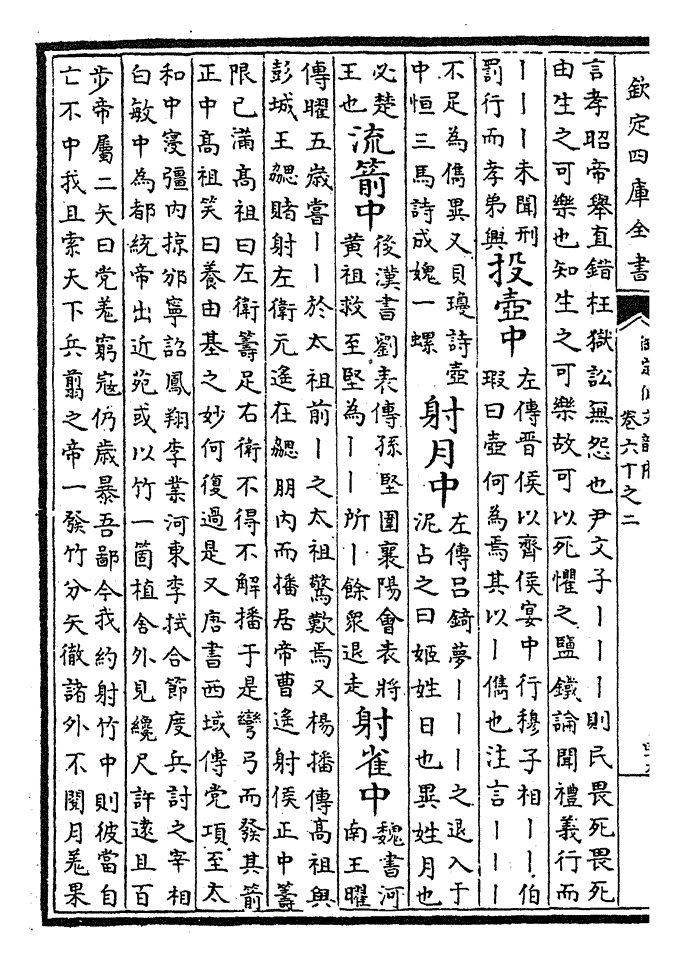 欽定四庫全書
卷六十之二
言孝昭帝舉直錯枉獄訟無怨也尹文子丨丨丨則民畏死畏死
由生之可樂也知生之可樂故可以死懼之鹽鐵論聞禮義行而
丨丨丨未聞刑
罰行而孝弟興
投壺中
左傳晉侯以齊侯宴中行穆子相丨丨伯
瑕曰壺何為焉其以丨儁也注言丨丨丨
不足為儁異又貝瓊詩壺
中恒三馬詩成媿一螺
射月中
左傳吕錡夢丨丨丨之退入于
泥占之曰姬姓日也異姓月也
必楚
王也
流箭中
後漢書劉表傳孫堅圍襄陽會表將
黄祖救至堅為丨丨所丨餘衆退走
射雀中
魏書河
南王曜
傳曜五歲嘗丨丨於太祖前丨之太祖驚歎焉又楊播傳髙祖與
彭城王勰賭射左衛元遥在勰朋内而播居帝曹遥射侯正中籌
限已滿髙祖曰左衛籌足右衛不得不解播于是彎弓而發其箭
正中髙祖笑曰養由基之妙何復過是又唐書西域傳党項至太
和中寖彊内掠邠寧詔鳳翔李業河東李拭合節度兵討之宰相
白敏中為都統帝出近苑或以竹一箇植舍外見纔尺許逺且百
步帝屬二矢曰党羌窮寇仍歲暴吾鄙今我約射竹中則彼當自
亡不中我且索天下兵翦之帝一發竹分矢徹諸外不閱月羌果